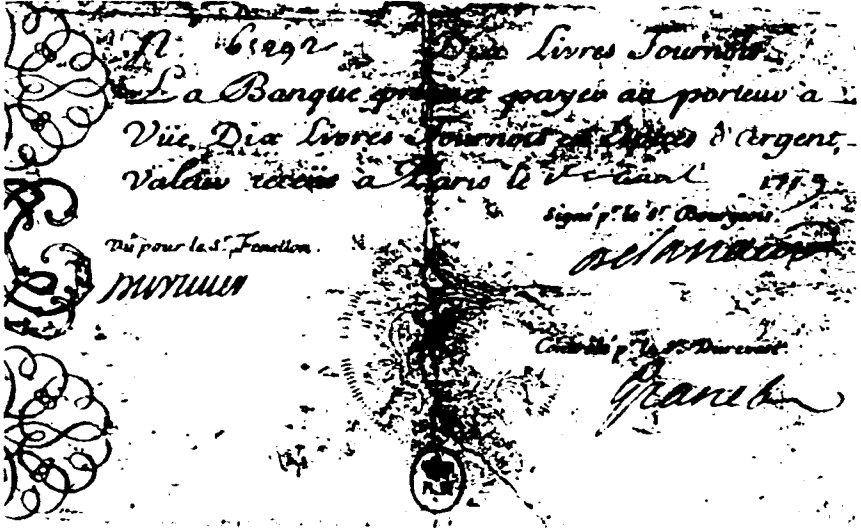 N. 65292 Dix Livres Tournois.
La Banque promet payer au porteur a
Vüe Dix Livres Tournois en Especes d'Argent,
Valeur receüe à Paris le 1719
Signé p.r le S.r Bourgeois.
Vû pour le S.r Fenellon.
Controllé p.r le S.r Durevest.
Granet